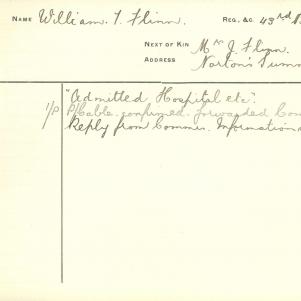 NAME William. T. Flinn. REG. &C. 43rd B
NEXT OF KIN Mr J. Flinn.
ADDRESS Norton's Summ
"Admitted Hospital etc".
1/P P/Cable. confirmed. forwarded Com
Reply from Commn. Information